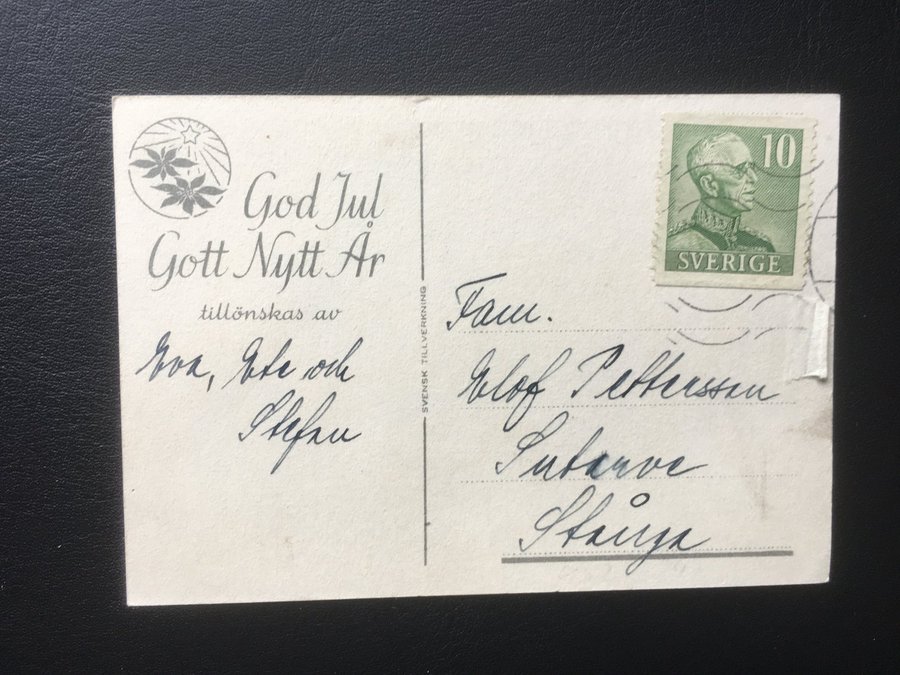 God Jul
Gott Nytt År
tillönskas av
Eva, Ete och
Stefan
SVENSK TILLVERKNING
10
SVERIGE
Fam.
Elof Pettersson
Sutarve
Stånga